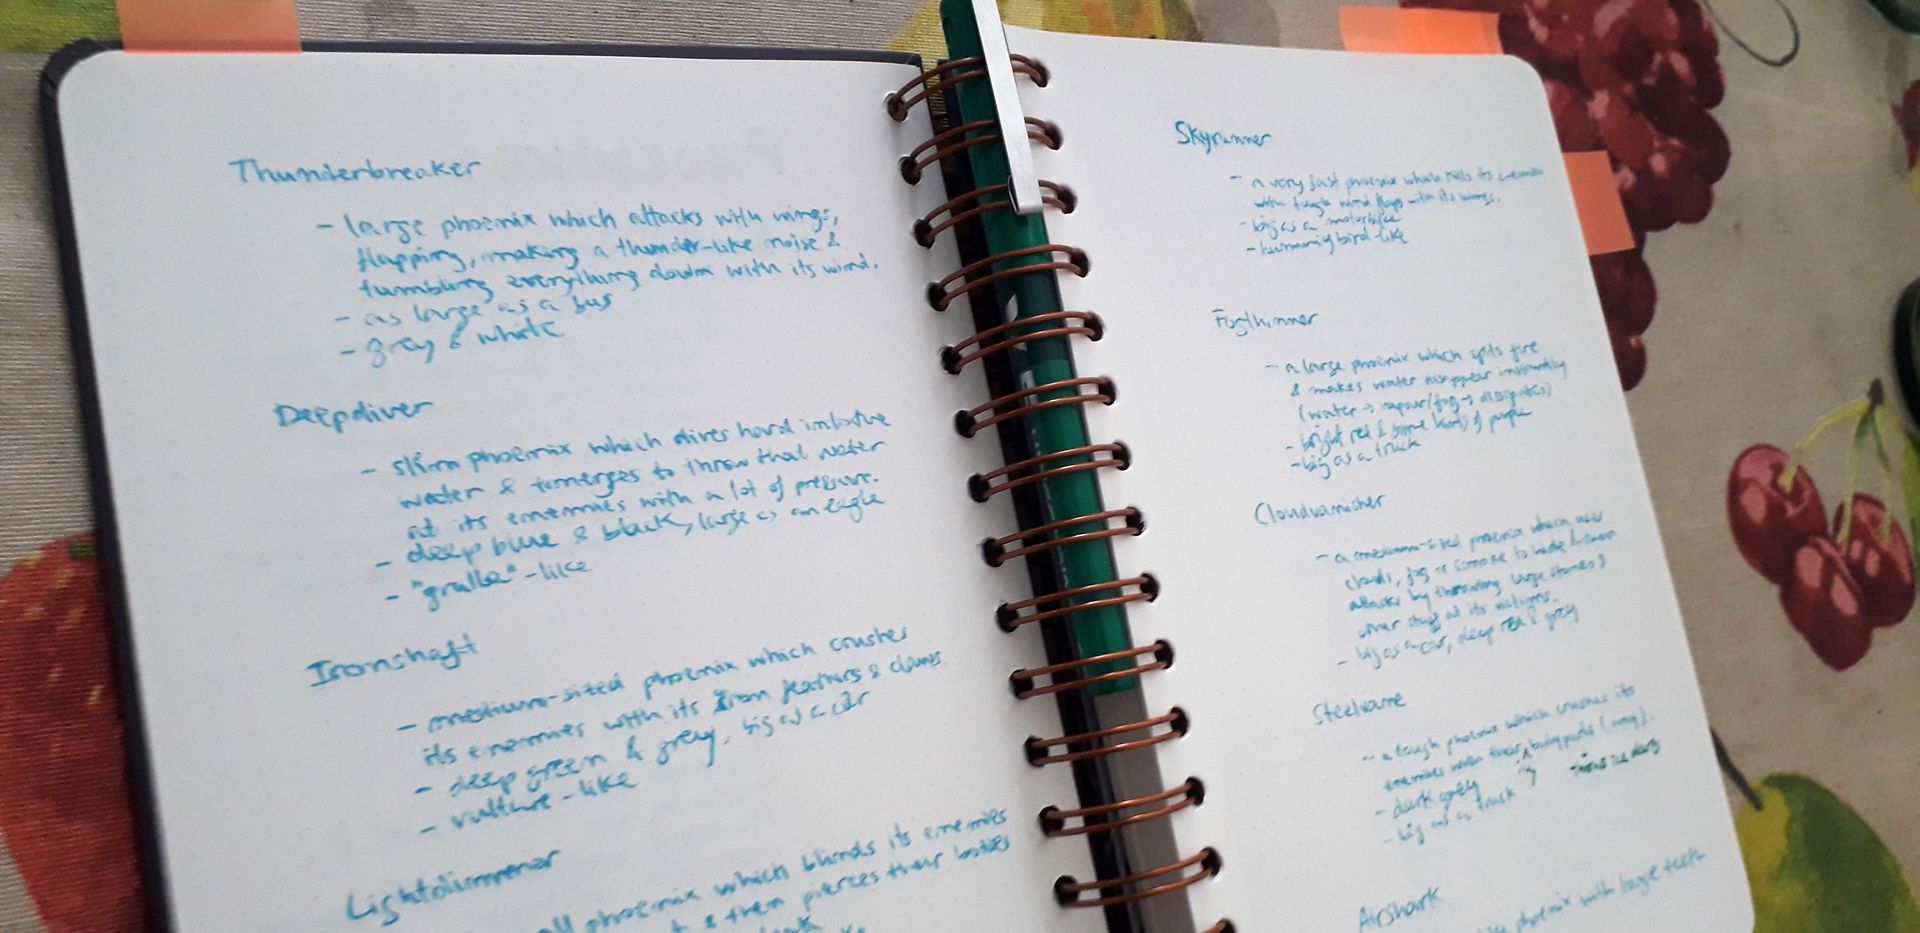 Thunderbreaker
- large phoenix which attacks with wings,
flapping, making a thunder-like noise &
tumbling everything down with its wind.
- as large as a bus
- grey & white
Deepdiver
- slim phoenix which dives hard into the
water & emerges to throw that water
at its enemies with a lot of pressure.
- deep blue & black, large as an eagle
- "grulla"-like
Ironshaft
- medium-sized phoenix which crushes
its enemies with its iron feathers & claws
- deep green & grey, big as a car
- vulture-like
Lightdimmer
phoenix which blinds its enemies
& then pierces their bodies
Skyrunner
- a very fast phoenix which kills its enemies
with tough wind flaps with its wings.
- big as a motorbike
- hummingbird-like
Fogthinner
- a large phoenix which spits fire
& makes water disappear instantly
(water → vapour/fog → dissipates)
- bright red & some kind of purple
- big as a truck
Cloudvanisher
- a medium-sized phoenix which uses
clouds, fog or smoke to hide & then
attacks by throwing large stones &
other stuff at its victims.
- big as a car, deep red & grey
Steelvane
- a tough phoenix which crushes its
enemies when their body parts
- dark grey
- big as a truck
Airshark
phoenix with large teeth